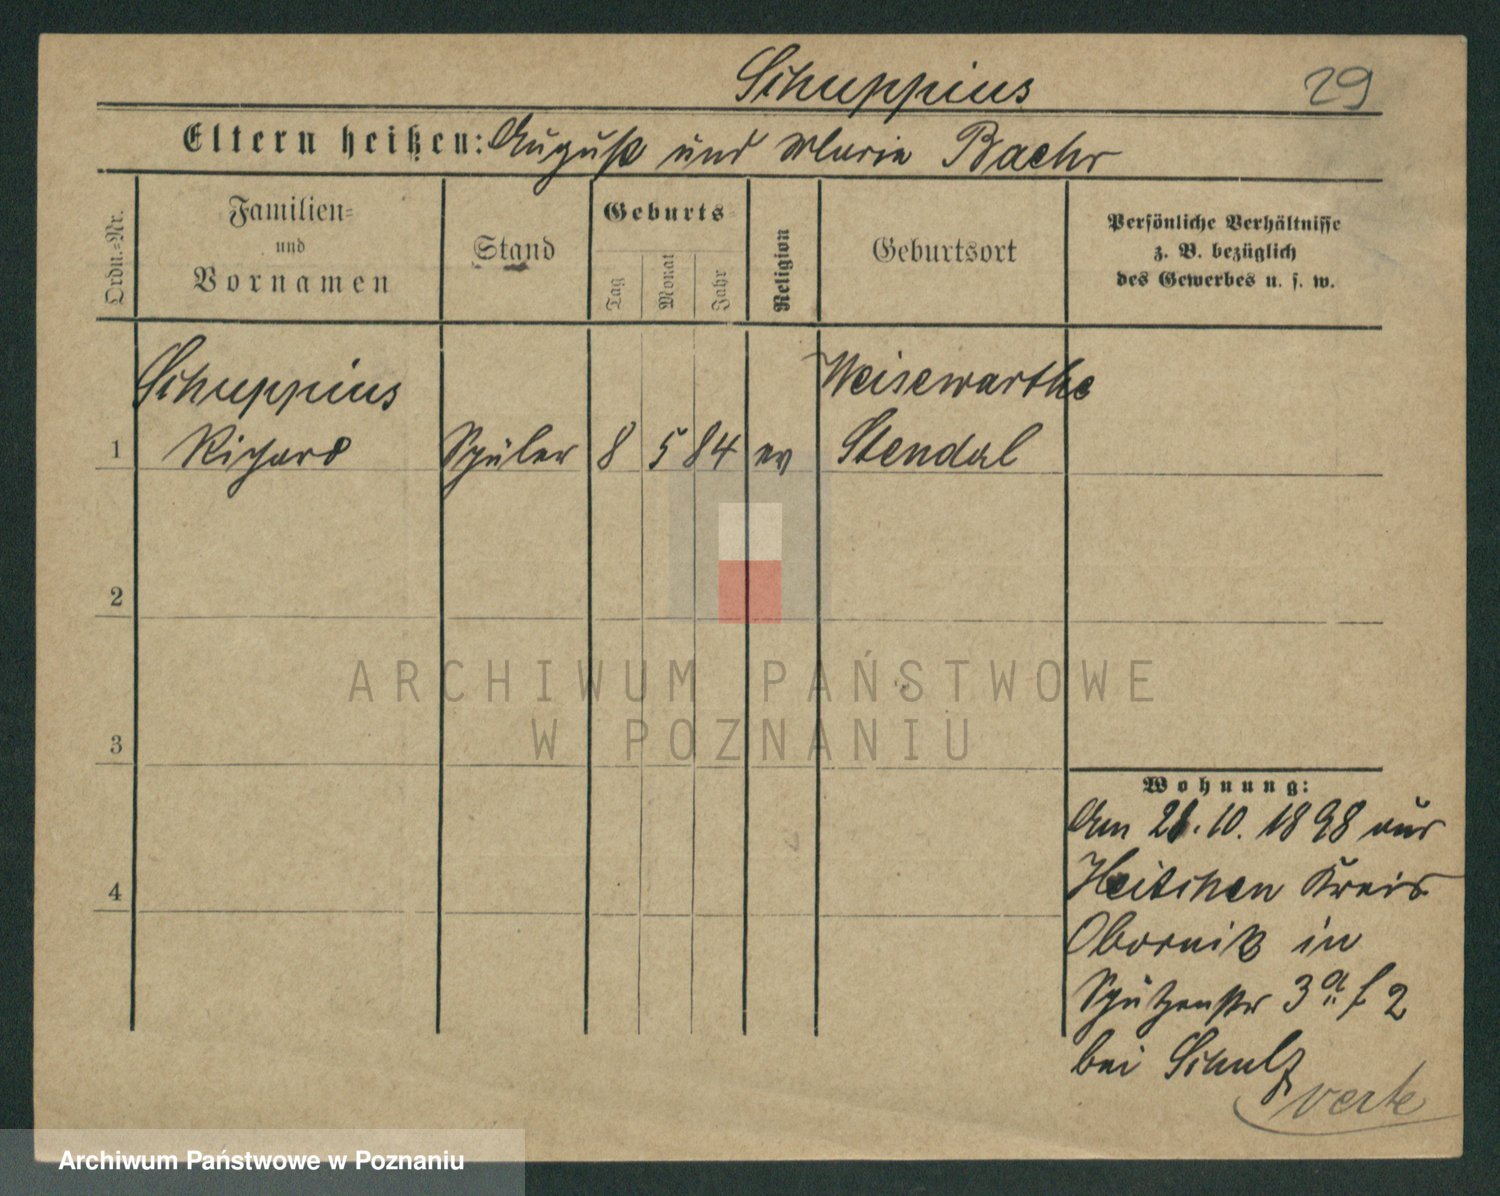 Schuppius
29
Eltern heißen: August und Maria Baehr
Ordn.=Nr.
Familien=
und
Vornamen
Stand
Geburts=
Tag
Monat
Jahr
Religion
Geburtsort
Persönliche Verhältnisse
z. B. bezüglich
des Gewerbes u. s. w.
Schuppius
Weisewarthe
1 Richard Schüler 8 5 84 ev Stendal
2
3
4
Wohnung:
Am 21.10.1898 aus
Kreis
Obornik in
Schützenstr 3a 2
bei Schulz
verte
ARCHIWUM PAŃSTWOWE
W POZNANIU
Archiwum Państwowe w Poznaniu